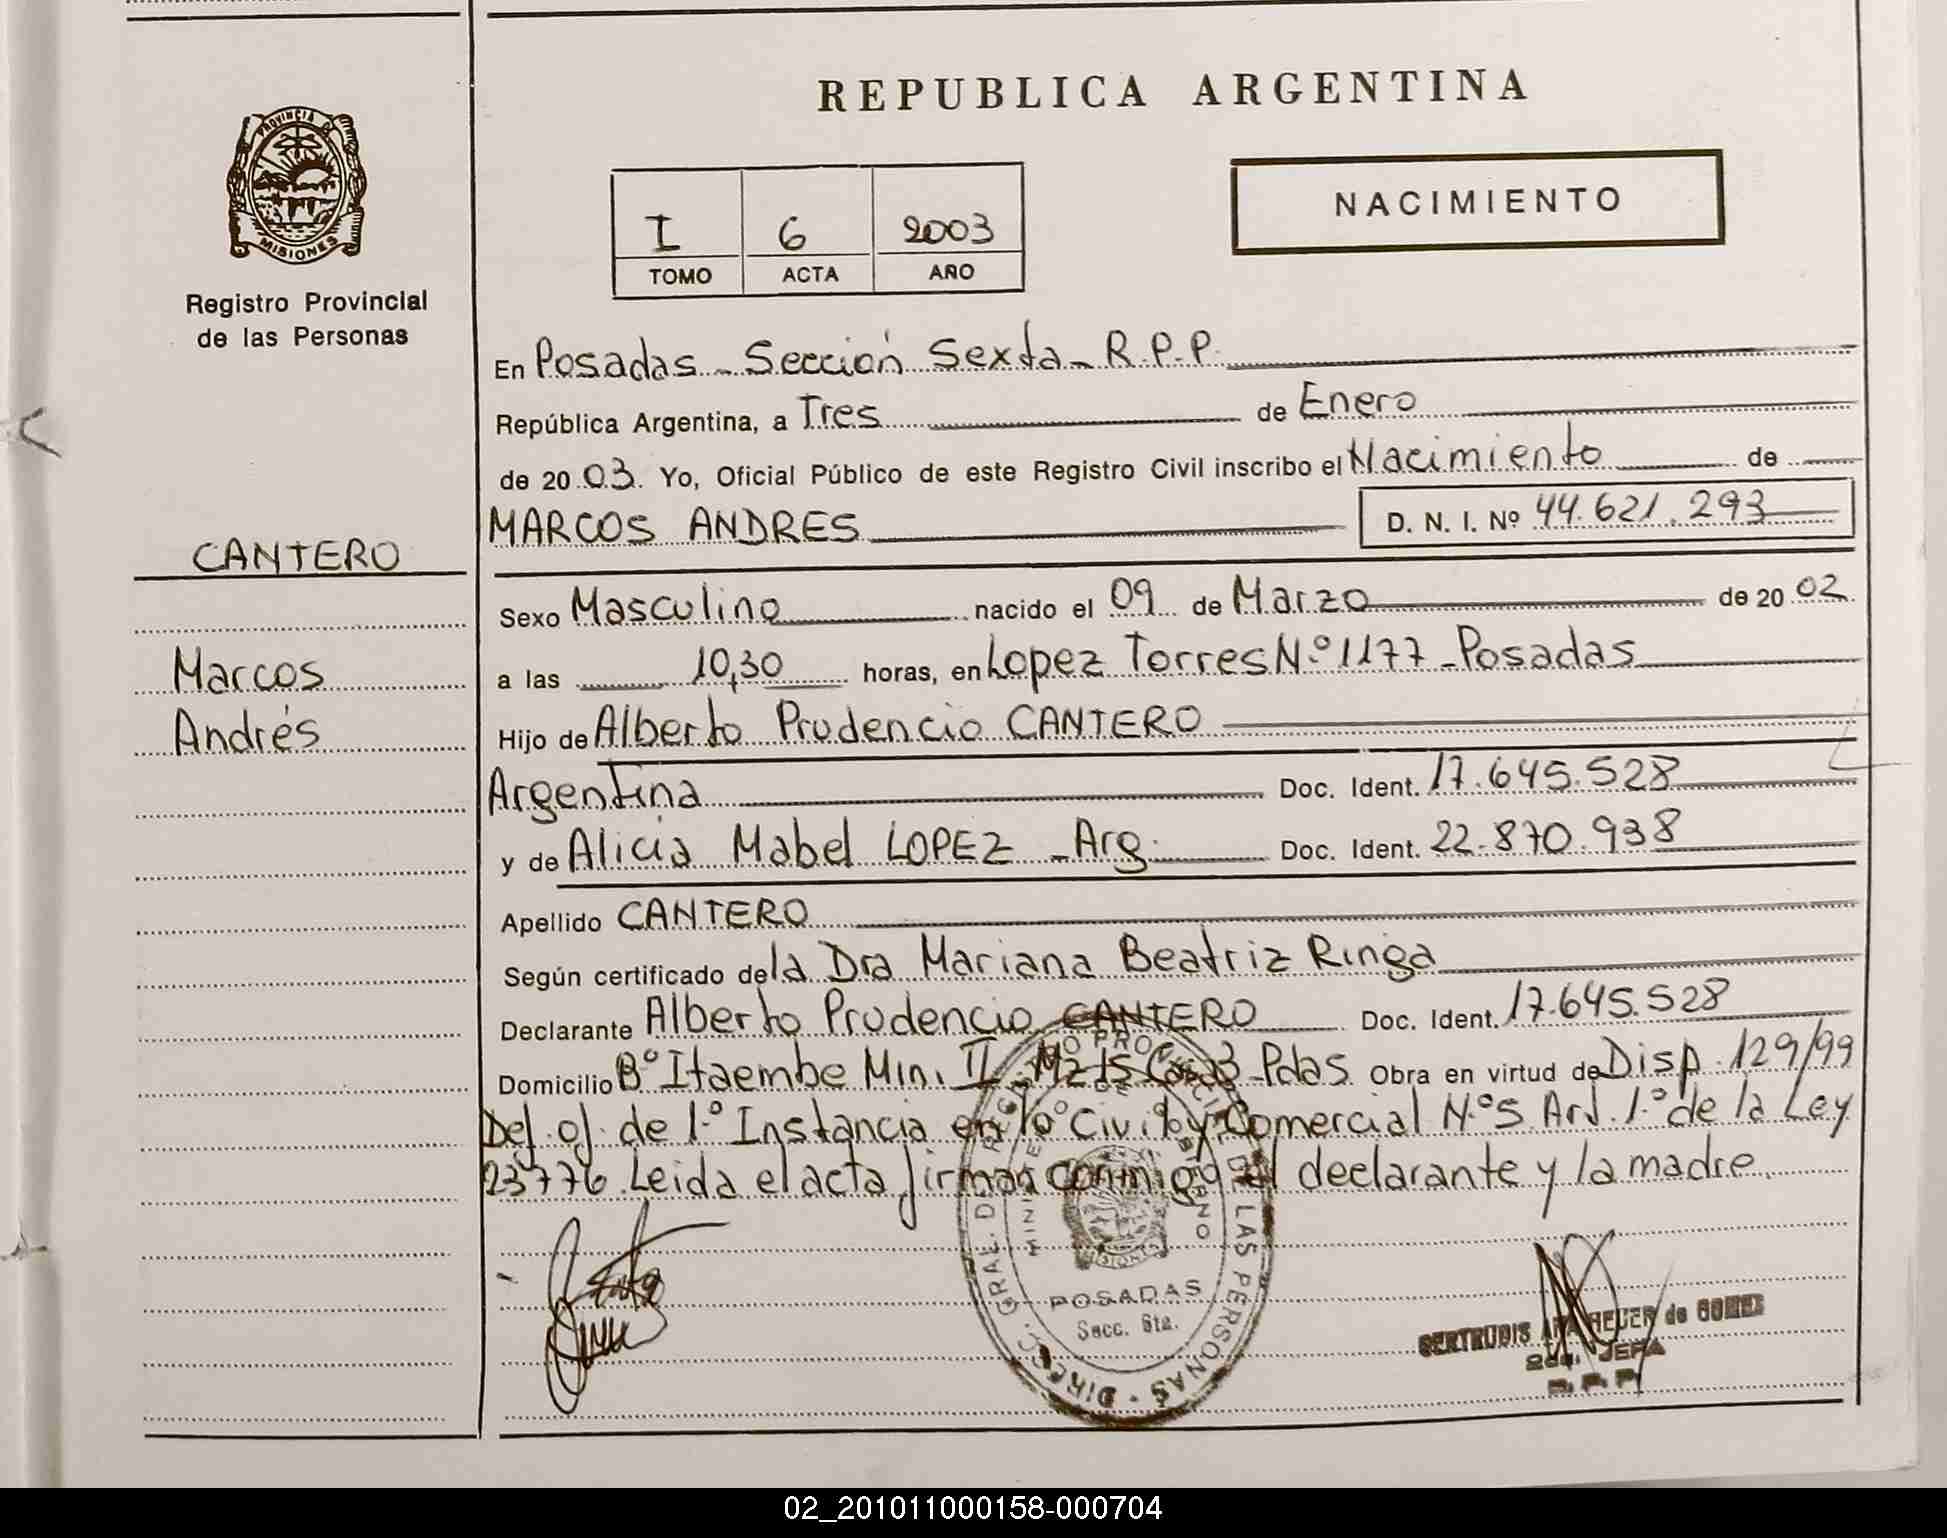 REPUBLICA ARGENTINA
PROVINCIA D
MISIONES
Registro Provincial
de las Personas
NACIMIENTO
I 6 2003
TOMO ACTA AÑO
En Posadas - Sección Sexta - R.P.P.
República Argentina, a Tres de Enero
de 20 03. Yo, Oficial Público de este Registro Civil inscribo el Nacimiento de
MARCOS ANDRES D. N. I. Nº 44.621.293
CANTERO
Sexo Masculino nacido el 09 de Marzo de 20 02
Marcos
a las 10,30 horas, en Lopez Torres N.º 1177 - Posadas
Andrés
Hijo de Alberto Prudencio CANTERO
Argentina Doc. Ident. 17.645.528
y de Alicia Mabel LOPEZ - Arg. Doc. Ident. 22.870.938
Apellido CANTERO
Según certificado de la Dra Mariana Beatriz Ringa
Declarante Alberto Prudencio CANTERO Doc. Ident. 17.645.528
Domicilio Bº Itaembe Min. II Mz 15 Casa 3 Pdas. Obra en virtud de Disp. 129/99
Def. of. de 1.º Instancia en lo Civil y Comercial N.º 5 Art. 1.º de la Ley
23776. Leida el acta firman conmigo el declarante y la madre.
DIRECC. GRAL. DE REGISTRO PROVINCIAL DE LAS PERSONAS
POSADAS
Secc. 6ta.
GERTRUDIS REUER de GOMEZ
2da. JEFA
R. P. P.
02_201011000158-000704